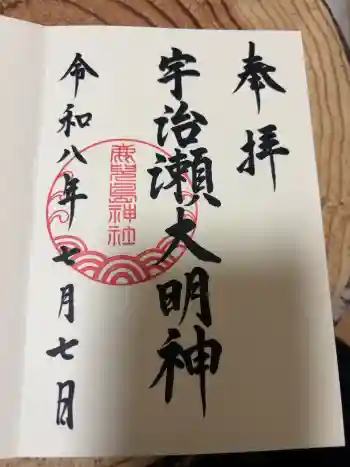 奉拝
宇治瀬大明神
鹿児島神社
令和八年七月七日